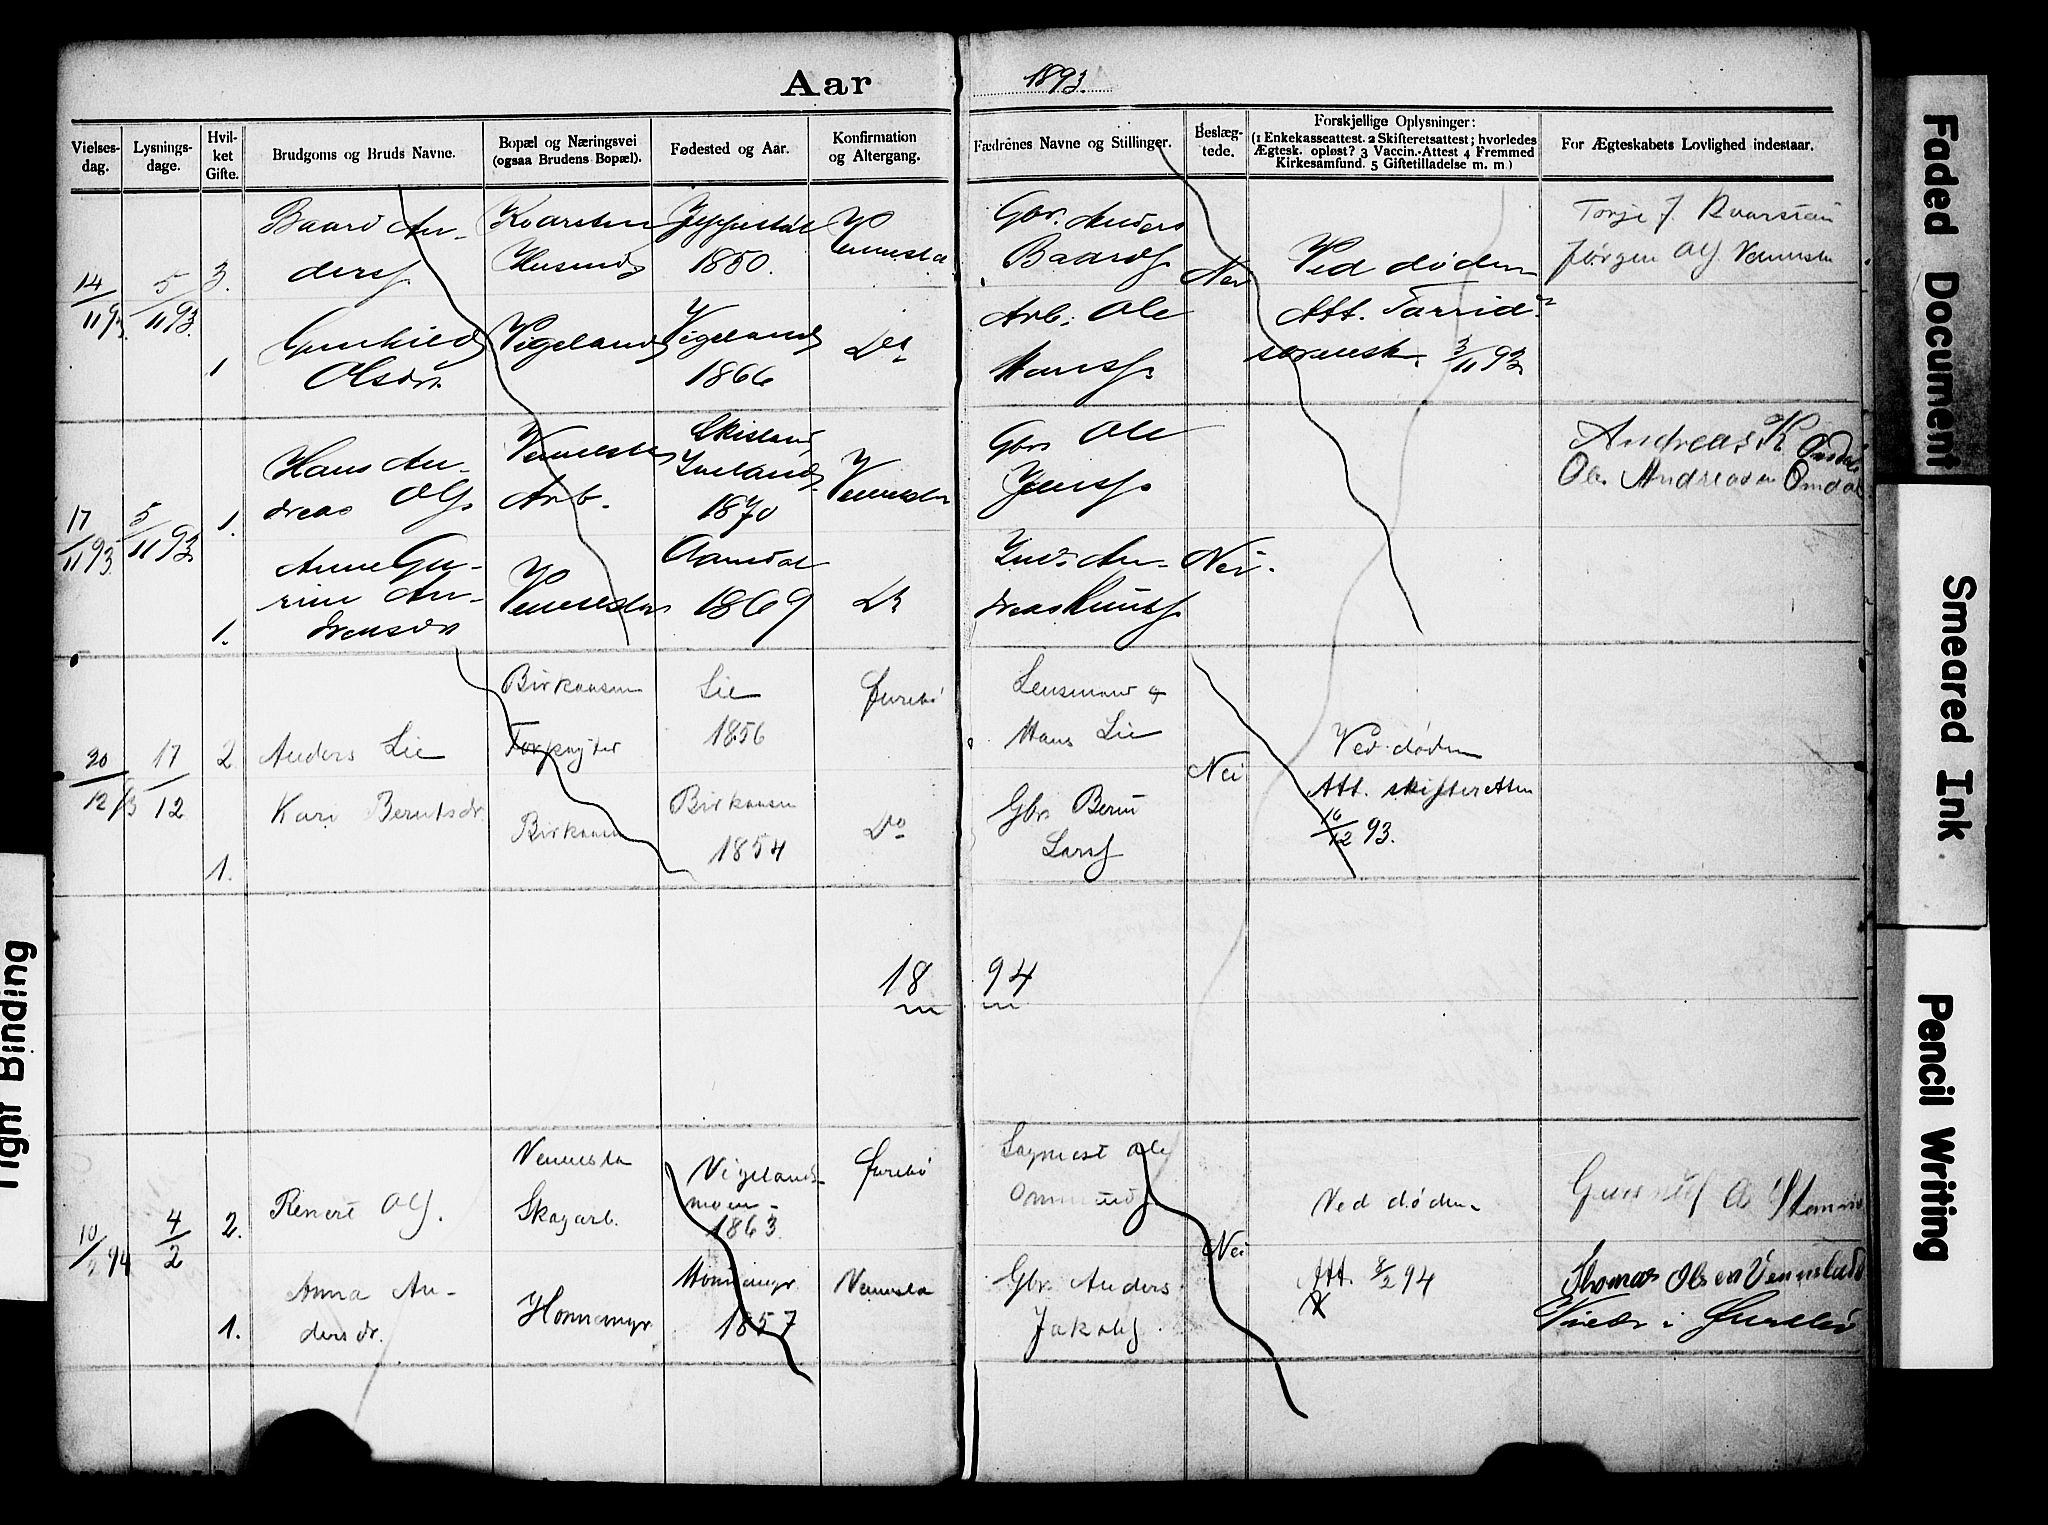 Aar 1893.
Vielses-dag. Lysnings-dage. Hvil-ket Gifte. Brudgoms og Bruds Navne. Bopæl og Næringsvei (ogsaa Brudens Bopæl). Fødested og Aar. Konfirmation og Altergang. Fædrenes Navne og Stillinger. Beslæg-tede. Forskjellige Oplysninger: (1 Enkekasseattest. 2 Skifteretsattest; hvorledes Ægtesk. opløst? 3 Vaccin.-Attest 4 Fremmed Kirkesamfund. 5 Giftetilladelse m. m.) For Ægteskabets Lovlighed indestaar.
14/11 93. 5/11 93. 3.
Baard An-
ders.
Kvarsten
1850.
Vennesla
Gbr. Anders
Baards.
Nei
Ved døden
Att.
3/11 93
Jørgen Ols. Vennesla
1
Gunhild
Olsdr.
Vigeland
Vigeland
1866
Do
Arb. Ole
Hans.
17/11 93. 5/11 93. 1.
Hans An-
dreas Ols.
Vennesla
Arb.
Skisland
Iveland
1870
Vennesla
Gbr. Ole
Jens.
Nei.
Andreas K Omdal
Ole Andreasen Omdal
1.
Anne Gu-
rine An-
dreasdr
Vennesla
Aamdal
1869
Do
Indr. An-
dreas Knuts.
20/12 93 17/12 2
Anders Lie
Birkaasen
Lie
1856
Øvrebø
Lensmand
Hans Lie
Nei
Ved døden
Att. skifteretten
16/12 93.
1.
Kari Berntsdr.
Birkaasen
Birkaasen
1854
Do
Gbr. Bernt
Lars.
18 94
10/2 94 4/2 2.
Reinert Ols.
Vennesla
Skogarb.
Vigelands-
moen
1863.
Øvrebø
Sagmest Ole
Ommunds
Nei
Ved døden
Att. 8/2 94
1.
Anna An-
dersdr.
Honnemyr
Honnemyr
1857
Vennesla
Gbr. Anders
Jakobs.
Thomas Olsen Vennesla
Faded Document
Smeared Ink
Pencil Writing
Tight Binding